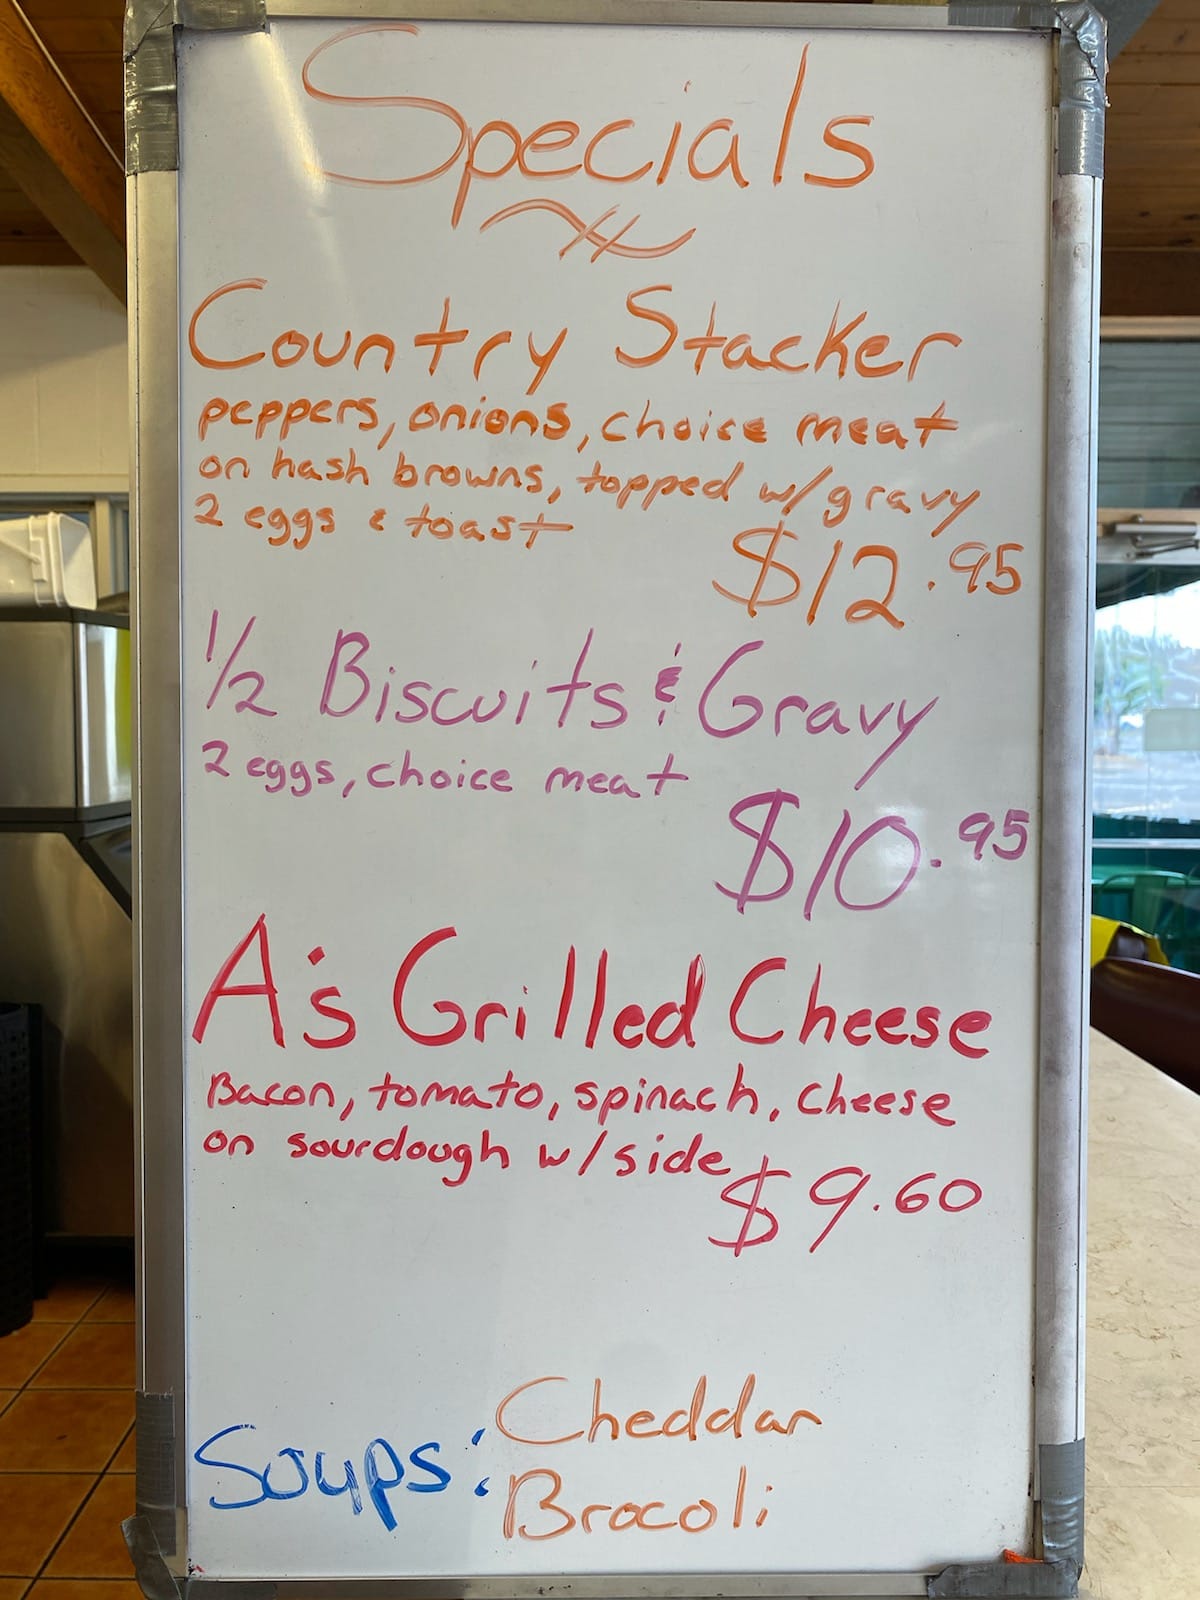 Specials
Country Stacker
peppers, onions, choice meat
on hash browns, topped w/gravy
2 eggs & toast
$12.95
1/2 Biscuits & Gravy
2 eggs, choice meat
$10.95
A's Grilled Cheese
Bacon, tomato, spinach, cheese
on sourdough w/side
$9.60
Soups: Cheddar
Brocoli